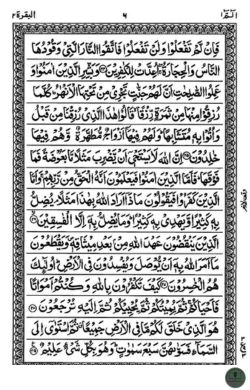 البقرة ٢ ٦ الٓمّٓ ١
فَإِنْ لَّمْ تَفْعَلُوْا وَلَنْ تَفْعَلُوْا فَاتَّقُوا النَّارَ الَّتِيْ وَقُوْدُهَا
النَّاسُ وَالْحِجَارَةُ ۖ أُعِدَّتْ لِلْكٰفِرِيْنَ ۝ وَبَشِّرِ الَّذِيْنَ اٰمَنُوْا وَ
عَمِلُوا الصّٰلِحٰتِ اَنَّ لَهُمْ جَنّٰتٍ تَجْرِيْ مِنْ تَحْتِهَا الْاَنْهٰرُ ؕ كُلَّمَا
رُزِقُوْا مِنْهَا مِنْ ثَمَرَةٍ رِّزْقًا ۙ قَالُوْا هٰذَا الَّذِيْ رُزِقْنَا مِنْ قَبْلُ
وَاُتُوْا بِهٖ مُتَشَابِهًا ؕ وَلَهُمْ فِيْهَاۤ اَزْوَاجٌ مُّطَهَّرَةٌ ۙ وَّهُمْ فِيْهَا
خٰلِدُوْنَ ۝ اِنَّ اللّٰهَ لَا يَسْتَحْيٖۤ اَنْ يَّضْرِبَ مَثَلًا مَّا بَعُوْضَةً فَمَا
فَوْقَهَا ؕ فَاَمَّا الَّذِيْنَ اٰمَنُوْا فَيَعْلَمُوْنَ اَنَّهُ الْحَقُّ مِنْ رَّبِّهِمْ ۚ وَاَمَّا
الَّذِيْنَ كَفَرُوْا فَيَقُوْلُوْنَ مَاذَاۤ اَرَادَ اللّٰهُ بِهٰذَا مَثَلًا ۘ يُضِلُّ
بِهٖ كَثِيْرًا ۙ وَّيَهْدِيْ بِهٖ كَثِيْرًا ؕ وَمَا يُضِلُّ بِهٖۤ اِلَّا الْفٰسِقِيْنَ ۝
الَّذِيْنَ يَنْقُضُوْنَ عَهْدَ اللّٰهِ مِنْۢ بَعْدِ مِيْثَاقِهٖ ۪ وَيَقْطَعُوْنَ
مَاۤ اَمَرَ اللّٰهُ بِهٖۤ اَنْ يُّوْصَلَ وَيُفْسِدُوْنَ فِي الْاَرْضِ ؕ اُولٰٓئِكَ
هُمُ الْخٰسِرُوْنَ ۝ كَيْفَ تَكْفُرُوْنَ بِاللّٰهِ وَكُنْتُمْ اَمْوَاتًا
فَاَحْيَاكُمْ ۚ ثُمَّ يُمِيْتُكُمْ ثُمَّ يُحْيِيْكُمْ ثُمَّ اِلَيْهِ تُرْجَعُوْنَ ۝
هُوَ الَّذِيْ خَلَقَ لَكُمْ مَّا فِي الْاَرْضِ جَمِيْعًا ۗ ثُمَّ اسْتَوٰۤى اِلَى
السَّمَآءِ فَسَوّٰىهُنَّ سَبْعَ سَمٰوٰتٍ ؕ وَهُوَ بِكُلِّ شَيْءٍ عَلِيْمٌ ۝